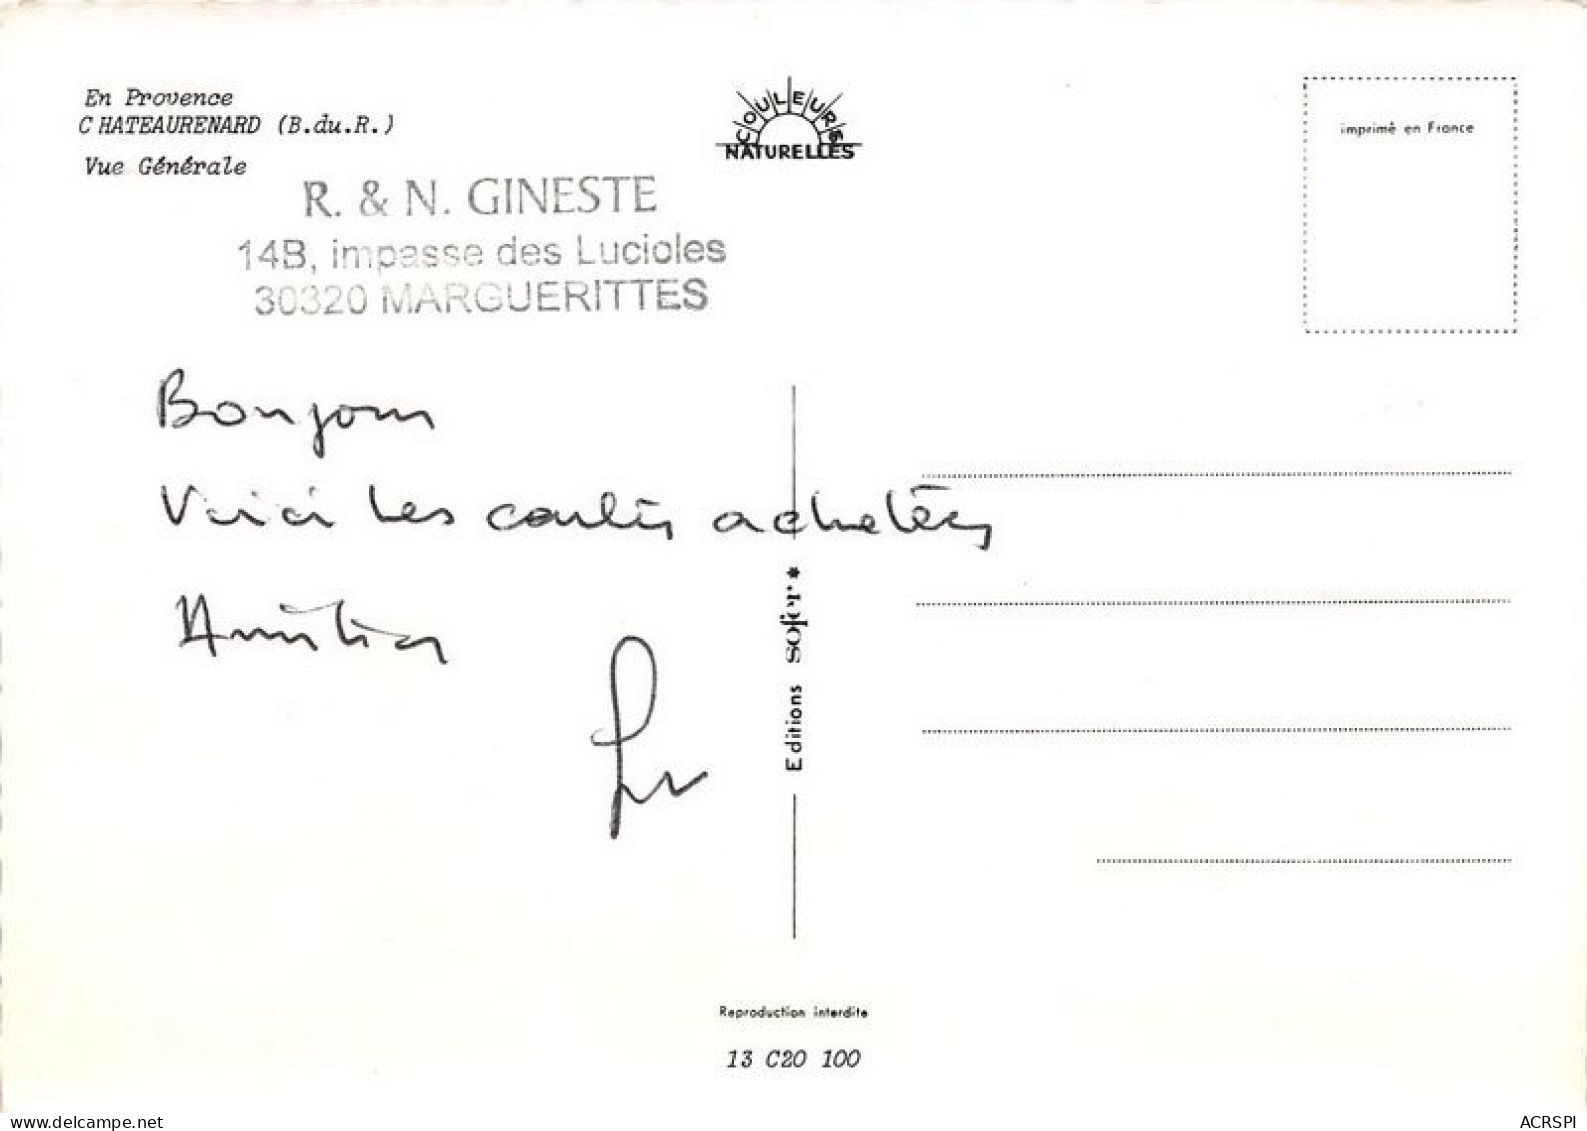 En Provence
CHATEAURENARD (B.du.R.)
Vue Générale
COULEURS
NATURELLES
imprimé en France
R. & N. GINESTE
14B, impasse des Lucioles
30320 MARGUERITTES
Bonjour
Voici les cartes achetées
Amitiés
Editions sofer *
Reproduction interdite
13 C20 100
ACRSPI
delcampe.net